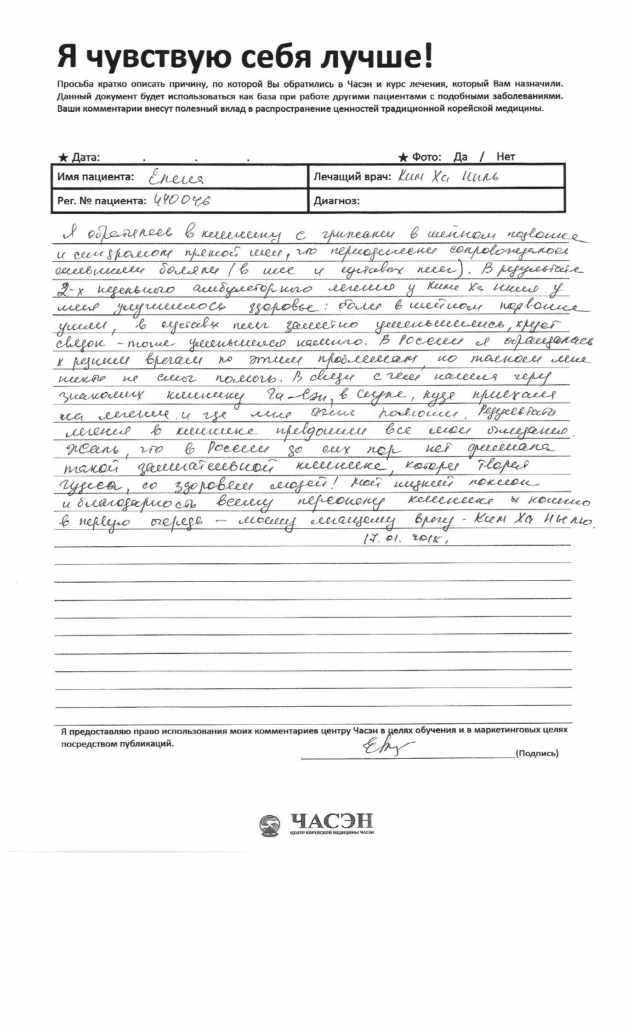 Я чувствую себя лучше!
Просьба кратко описать причину, по которой Вы обратились в Часэн и курс лечения, который Вам назначили.
Данный документ будет использоваться как база при работе другими пациентами с подобными заболеваниями.
Ваши комментарии внесут полезный вклад в распространение ценностей традиционной корейской медицины.
★ Дата: . . . ★ Фото: Да / Нет
Имя пациента: Елена Лечащий врач: Ким Ха Ниль
Рег. № пациента: 440046 Диагноз:
Я обратилась в клинику с грыжами в шейном позвонке
и синдромом прямой шеи, что периодически сопровождалось
сильными болями (в шее и суставах плеч). В результате
2-х недельного амбулаторного лечения у Ким Ха Ниля у
меня улучшилось здоровье: боли в шейном позвонке
ушли, в суставах плеч заметно уменьшились, хруст
связок - тоже уменьшился намного. В России я обращалась
к разным врачам по этим проблемам, но толком мне
никто не смог помочь. В связи с чем нашла через
знакомых клинику Ча-Сэн в Сеуле, куда приехала
на лечение и где мне помогли. Результаты
лечения в клинике превзошли все мои ожидания.
Жаль, что в России до сих пор нет филиала
такой замечательной клиники, которая творит
чудеса, со здоровьем людей! Мой низкий поклон
и благодарность всему персоналу клиники и конечно
в первую очередь – моему лечащему врачу - Ким Ха Нылю.
17.01.2018.
Я предоставляю право использования моих комментариев центру Часэн в целях обучения и в маркетинговых целях
посредством публикаций.
(Подпись)
ЧАСЭН
ЦЕНТР КОРЕЙСКОЙ МЕДИЦИНЫ ЧАСЭН